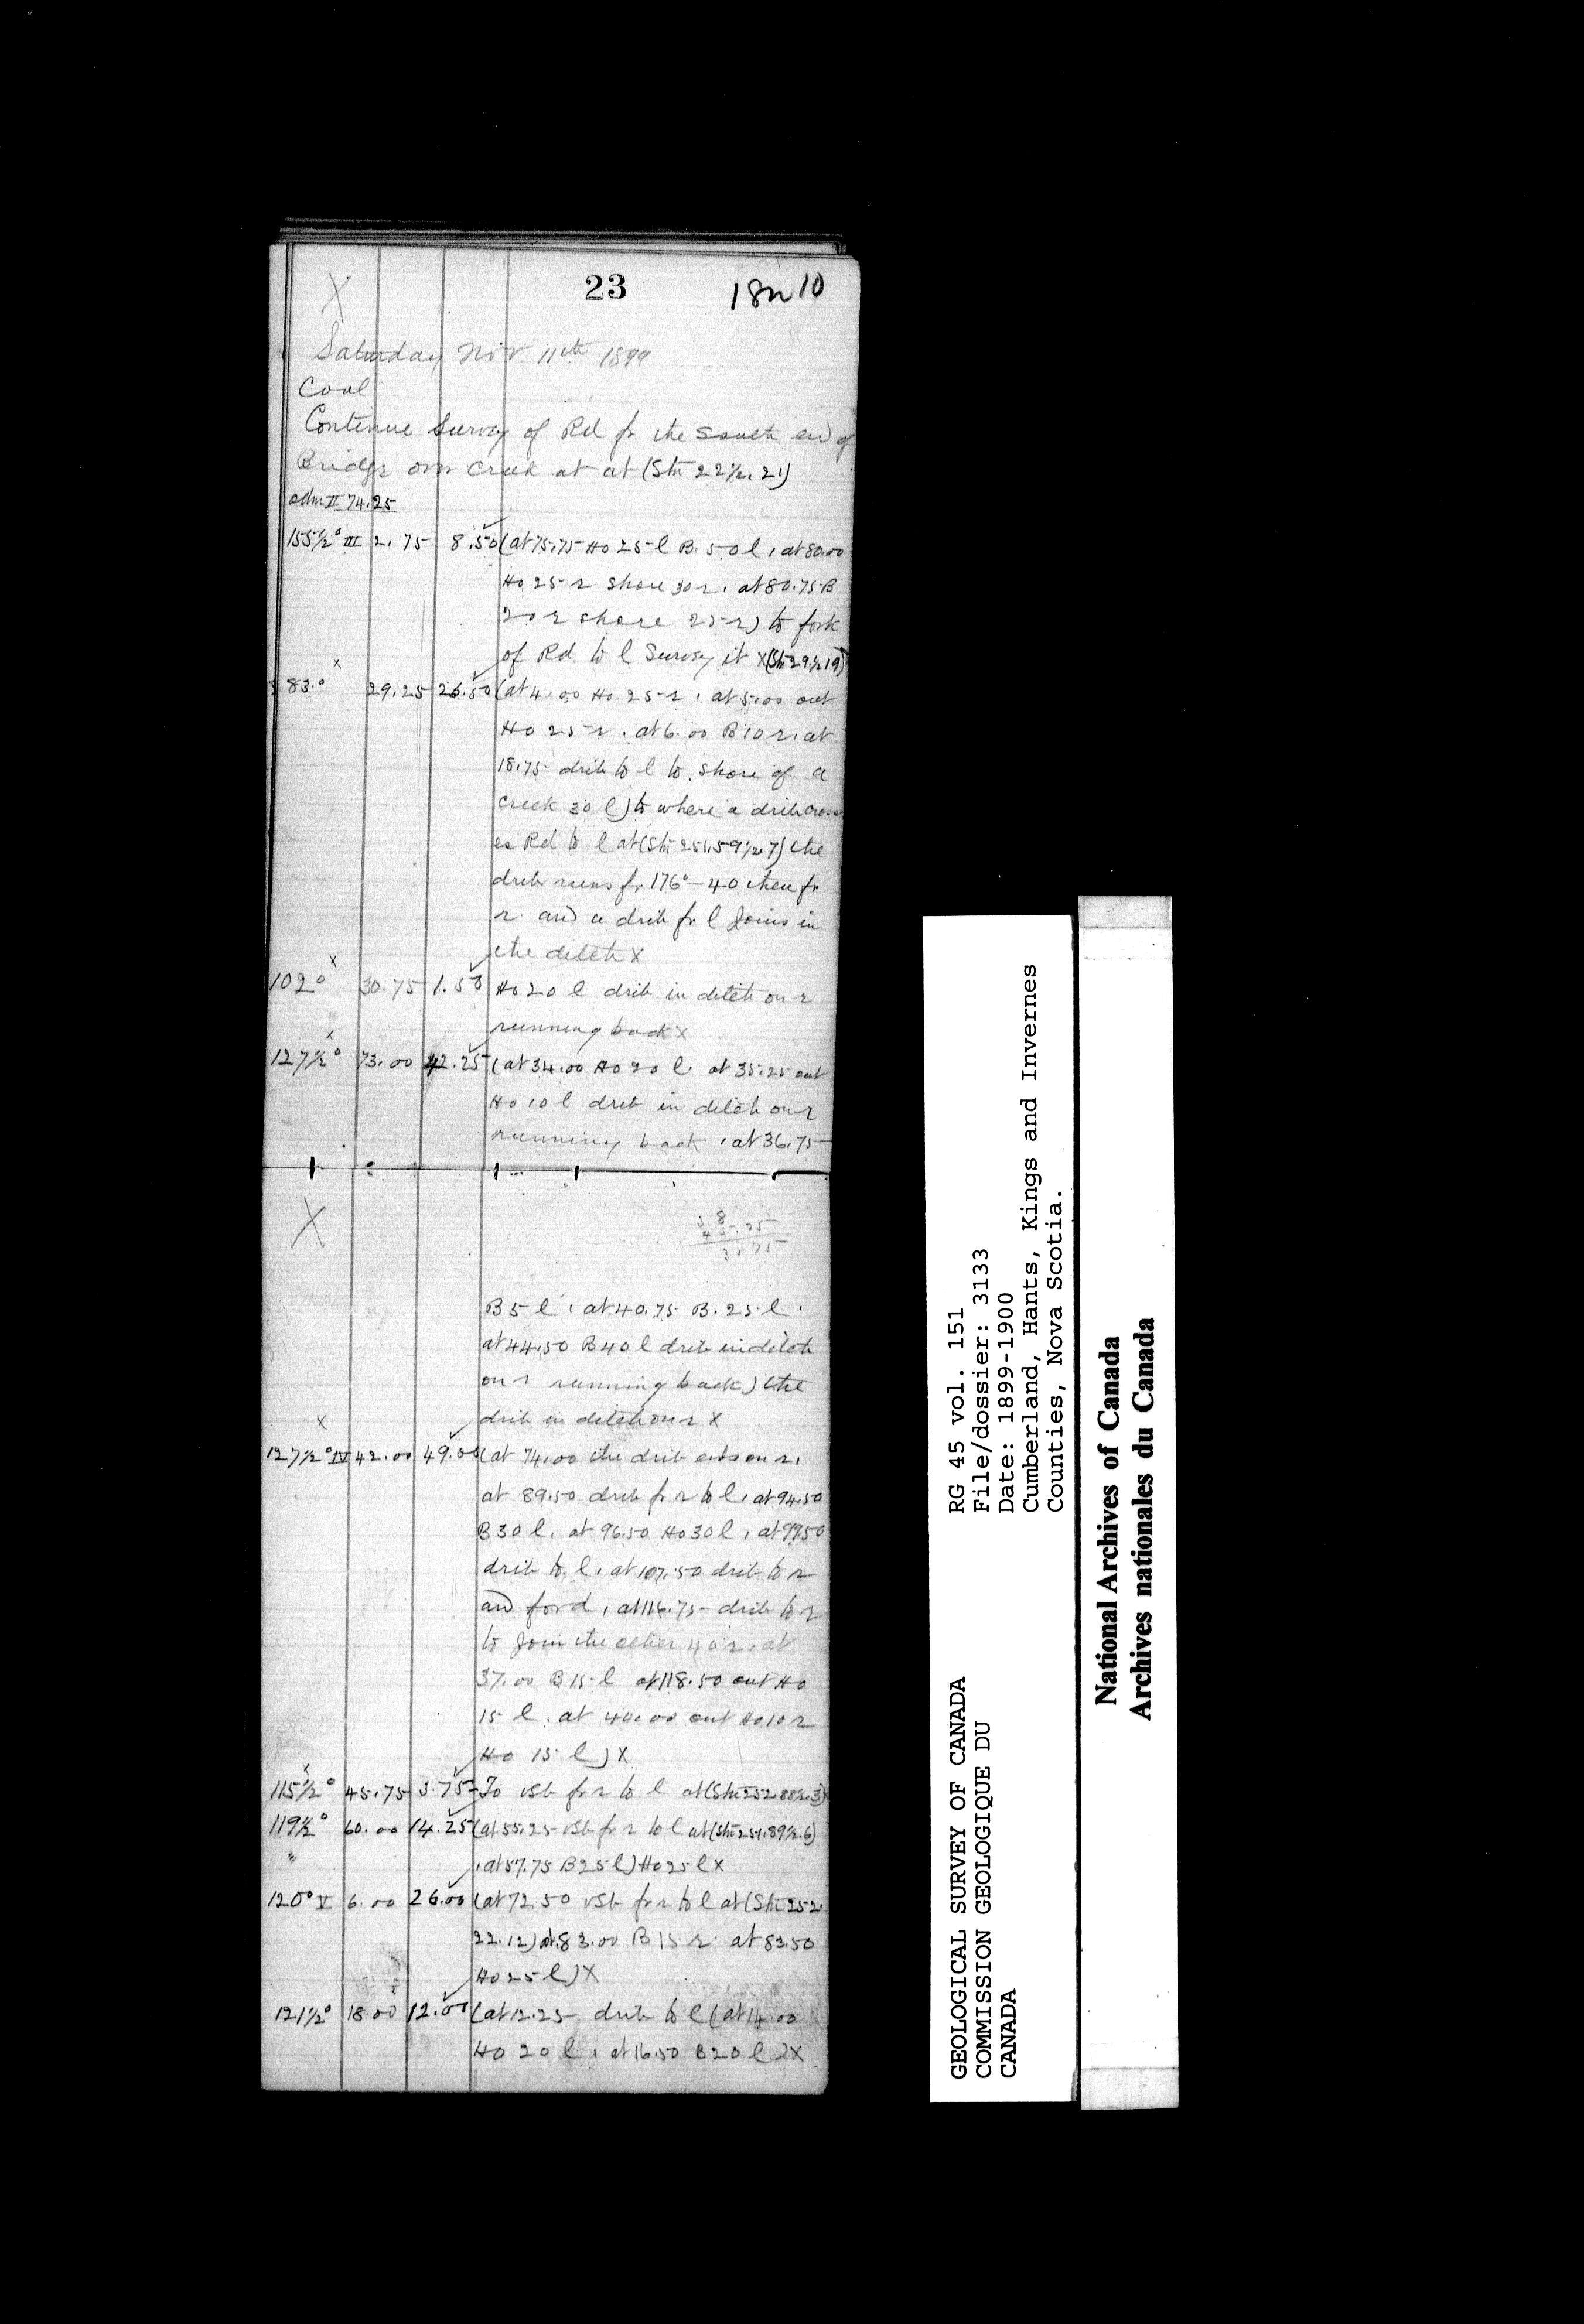 23
18n10
Saturday Nov 11th 1899
Cool
Continue Survey of Rd fr the South end of
Bridge over Creek at at (Stn 22½.21)
odm II 74.25
155½° III 2.75 8.50 (at 75.75 Ho 25 l B. 50 l, at 80.00
Ho 25 r shore 30 r. at 80.75 B
20 r shore 25 r) to fork
of Rd to l Survey it X (Stn 29½ 19)
83.° 29.25 26.50 (at 4.00 Ho 25 r, at 5.00 out
Ho 25 r. at 6.00 B 10 r. at
18.75 drib to l to shore of a
Creek 30 l) to where a drib cross
es Rd to l at (Stn 251.59½.7) the
drib runs fr 176°-40 then fr
r and a drib fr l Joins in
the ditch X
102° 30.75 1.50 Ho 20 l drib in ditch on r
running back X
127½° 73.00 42.25 (at 34.00 Ho 20 l at 35.25 out
Ho 10 l drib in ditch on r
running back, at 36.75
B 5 l, at 40.75 B. 25 l.
at 44.50 B 40 l drib in ditch
on r running back) the
drib in ditch on r X
127½° IV 42.00 49.00 (at 74.00 the drib ends on r,
at 89.50 drib fr r to l, at 94.50
B 30 l, at 96.50 Ho 30 l, at 99.50
drib to l, at 107.50 drib to r
and ford, at 116.75 drib to r
to Join the other 40 r. at
37.00 B 15 l at 118.50 out Ho
15 l. at 40.00 out Ho 10 r
Ho 15 l) X
115½° 45.75 3.75 To vSb fr r to l at (Stn 252.88½.3)
119½° 60.00 14.25 (at 55.25 vSb fr r to l at (Stn 251.89½.6)
" , at 57.75 B 25 l) Ho 25 l X
120° V 6.00 26.00 (at 72.50 vSb fr r to l at (Stn 252.
22.12) at 83.00 B 15 r at 83.50
Ho 25 l) X
121½° 18.00 12.00 (at 12.25 drib to l (at 14.00
Ho 20 l, at 16.50 B 20 l) X
GEOLOGICAL SURVEY OF CANADA
COMMISSION GEOLOGIQUE DU
CANADA
RG 45 vol. 151
File/dossier: 3133
Date: 1899-1900
Cumberland, Hants, Kings and Invernes
Counties, Nova Scotia.
National Archives of Canada
Archives nationales du Canada